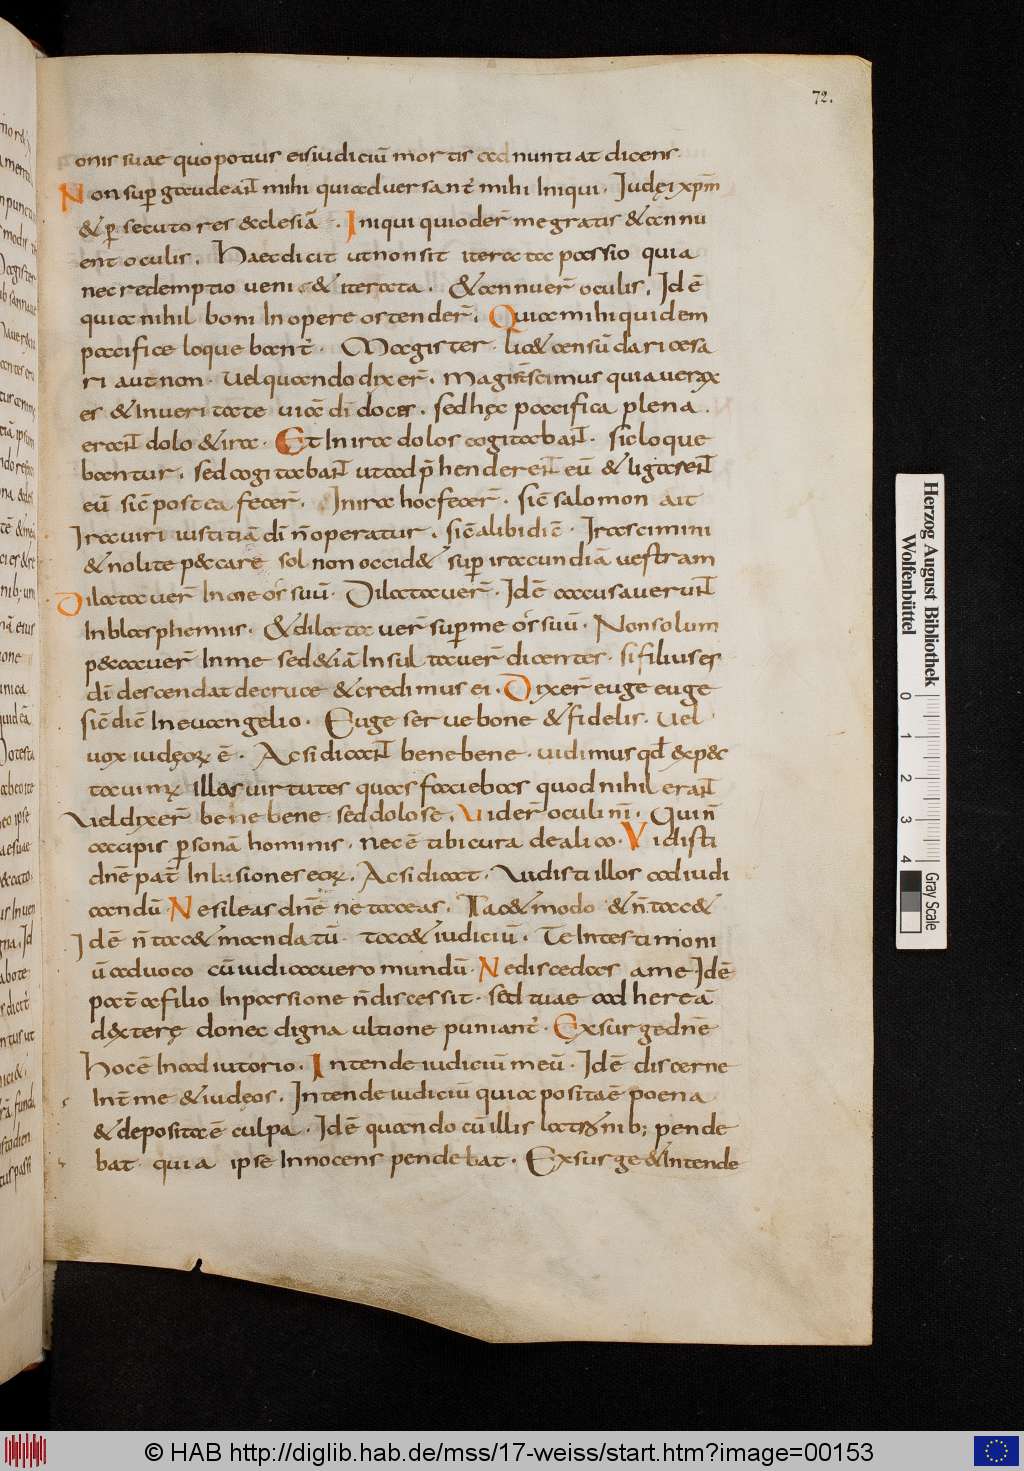 72.
onis suae quo potius eis iudiciū mortis ad nuntiat dicens.
Non sup gaudeant mihi qui adversant mihi Iniqui. Iudęi xpm
& p secutores & clesiā. Iniqui qui oder me gratis & annu
ent oculis. Haec dicit ut non sit iterata passio quia
nec redemptio veni & iterata. & annuer oculis. Idē
quia nihil boni In opere ostender. Quia mihi quidem
pacifice loquebant. Magister lic& censū dari cesa
ri aut non. Vel quando dixer. Magist scimus quia verax
es & In veritate viā dī doces. sed hęc pacifica plena
erant dolo & ira. Et In ira dolos cogitabant. sic loque
bantur. sed cogitabant ut ad phenderent eū & ligarent
eū sic postea fecer. In ira hoc fecer. sic salomon ait
Ira viri iustitiā dī n operatur. sic alibi dic. Irascimini
& nolite peccare sol non occid& sup iracundiā vestram
Dilataver In me os suū. Dilataver. Idē accusaverunt
In blasphemiis. & dilataver sup me os suū. Non solum
peccaver In me sed & iā Insultaver dicentes. si filius es
dī descendat de cruce & credimus ei. Dixer euge euge
sic dic In evangelio. Euge serve bone & fidelis. Vel
vox iudęorum ē. Ac si dicant bene bene. vidimus qd & expec
tavimus illas virtutes quas faciebas quod nihil erant
Vel dixer bene bene sed dolose. Vider oculi nī. Qui n
accipis psonā hominis. nec ē tibi cura de alico. Vidisti
dnē pat Inlusiones eorum. Ac si dicat. Vidisti illos ad iudi
candū. Ne sileas dnē ne taceas. Tac& modo & n tac&
Idē n tac& mandatū. tac& iudiciū. Te In testimoni
ū advoco cū iudicavero mundū. Ne discedas a me Idē
pat a filio In passione n discessit. sed tuae adhereā
dexterę donec digna ultione puniant. Exsurge dnē
Hoc ē In adiutorio. Intende iudiciū meū. Idē discerne
Int me & iudęos. Intende iudiciū quia posita ē poena
& deposita ē culpa. Idē quando cū illis latronib; pende
bat quia ipse Innocens pendebat. Exsurge & Intende
Herzog August Bibliothek
Wolfenbüttel
0 1 2 3 4
Gray Scale
© HAB http://diglib.hab.de/mss/17-weiss/start.htm?image=00153